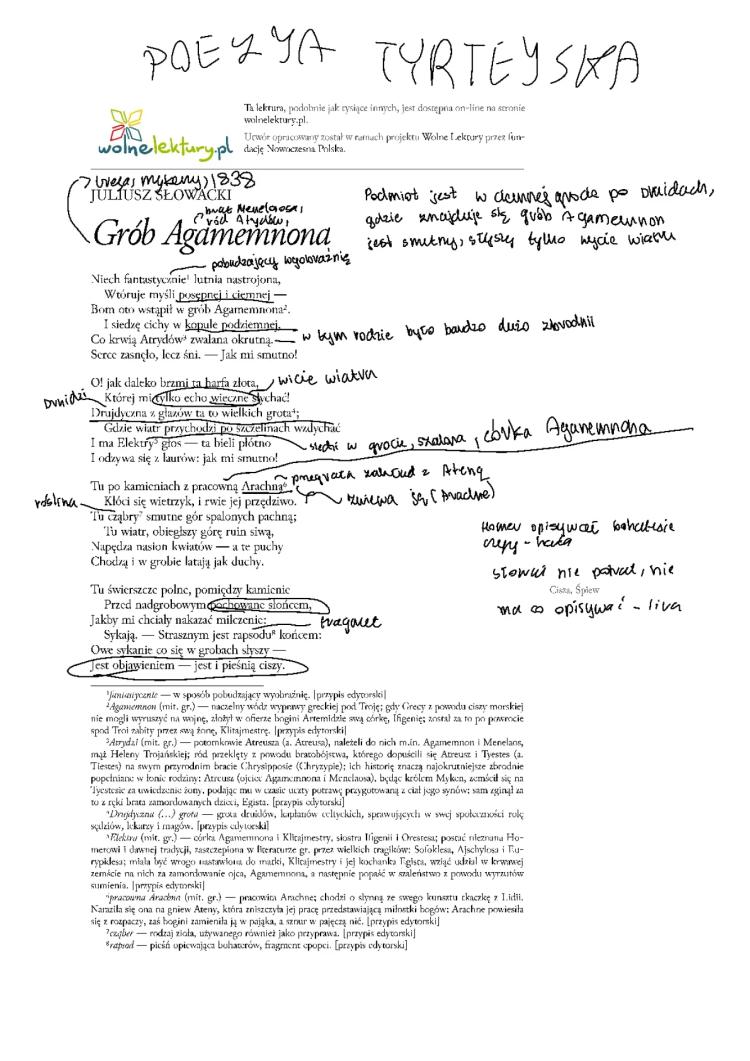 POEZYA TYRTEJSKA
Ta lektura, podobnie jak tysiące innych, jest dostępna on-line na stronie
wolnelektury.pl.
Utwór opracowany został w ramach projektu Wolne Lektury przez fun-
dację Nowoczesna Polska.
wolnelektury.pl
Grecja, Mykeny, 1838
JULIUSZ SŁOWACKI
brat Menelaosa,
ród Atrydów,
Grób Agamemnona
Podmiot jest w ciemnej grocie po Druidach,
gdzie znajduje się grób Agamemnon
jest smutny, słyszy tylko wycie wiatru
pobudzający wyobraźnię
Niech fantastycznie¹ lutnia nastrojona,
Wtóruje myśli posępnej i ciemnej —
Bom oto wstąpił w grób Agamemnona².
I siedzę cichy w kopule podziemnej,
Co krwią Atrydów³ zwalana okrutną.
w tym rodzie było bardzo dużo zbrodni
Serce zasnęło, lecz śni. — Jak mi smutno!
O! jak daleko brzmi ta harfa złota,
wicie wiatru
Której mi tylko echo wieczne słychać!
Druidzi
Drujdyczna z głazów ta to wielkich grota⁴;
Gdzie wiatr przychodzi po szczelinach wzdychać
I ma Elektry⁵ głos — ta bieli płótno
siedzi w grocie, szalona, córka Agamemnona
I odzywa się z laurów: jak mi smutno!
przegrała zakład z Ateną
Tu po kamieniach z pracowną Arachną⁶
Kłóci się wietrzyk, i rwie jej przędziwo.
(Arachne)
roślina
Tu cząbry⁷ smutne gór spalonych pachną;
Tu wiatr, obiegłszy górę ruin siwą,
Napędza nasion kwiatów — a te puchy
Chodzą i w grobie latają jak duchy.
Homer opisywał bohaterskie
czyny - harfa
Słowacki nie potrafi, nie
ma co opisywać - lira
Cisza, Śpiew
Tu świerszcze polne, pomiędzy kamienie
Przed nadgrobowym pochowane słońcem,
Jakby mi chciały nakazać milczenie:
fragment
Sykają. — Strasznym jest rapsodu⁸ końcem:
Owe sykanie co się w grobach słyszy —
Jest objawieniem — jest i pieśnią ciszy.
¹fantastycznie — w sposób pobudzający wyobraźnię. [przypis edytorski]
²Agamemnon (mit. gr.) — naczelny wódz wyprawy greckiej pod Troję; gdy Grecy z powodu ciszy morskiej
nie mogli wyruszyć na wojnę, złożył w ofierze bogini Artemidzie swą córkę, Ifigenię; został za to po powrocie
spod Troi zabity przez swą żonę, Klitajmestrę. [przypis edytorski]
³Atrydzi (mit. gr.) — potomkowie Atreusza (a. Atreusa), należeli do nich m.in. Agamemnon i Menelaos,
mąż Heleny Trojańskiej; ród przeklęty z powodu bratobójstwa, którego dopuścili się Atreusz i Tyestes (a.
Tiestes) na swym przyrodnim bracie Chrysipposie (Chryzypie); ich historię znaczą najokrutniejsze zbrodnie
popełniane w łonie rodziny: Atreusz (ojciec Agamemnona i Menelaosa), będąc królem Myken, zemścił się na
Tyestesie za uwiedzenie żony, podając mu w czasie uczty potrawę przygotowaną z ciał jego synów; sam zginął za
to z ręki brata zamordowanych dzieci, Egista. [przypis edytorski]
⁴Drujdyczna (…) grota — grota druidów, kapłanów celtyckich, sprawujących w swej społeczności rolę
sędziów, lekarzy i magów. [przypis edytorski]
⁵Elektra (mit. gr.) — córka Agamemnona i Klitajmestry, siostra Ifigenii i Orestesa; postać nieznana Ho-
merowi i dawnej tradycji, zaszczepiona w literaturze gr. przez wielkich tragików: Sofoklesa, Ajschylosa i Eu-
rypidesa; miała być wrogo nastawiona do matki, Klitajmestry i jej kochanka Egista, wziąć udział w krwawej
zemście na nich za zamordowanie ojca, Agamemnona, a następnie popaść w szaleństwo z powodu wyrzutów
sumienia. [przypis edytorski]
⁶pracowna Arachna (mit. gr.) — pracowita Arachne; chodzi o słynną ze swego kunsztu tkaczkę z Lidii.
Naraziła się ona na gniew Ateny, która zniszczyła jej pracę przedstawiającą miłostki bogów; Arachne powiesiła
się z rozpaczy, zaś bogini zamieniła ją w pająka, a sznur w pajęczą nić. [przypis edytorski]
⁷cząber — rodzaj zioła, używanego również jako przyprawa. [przypis edytorski]
⁸rapsod — pieśń opiewająca bohaterów, fragment epopei. [przypis edytorski]